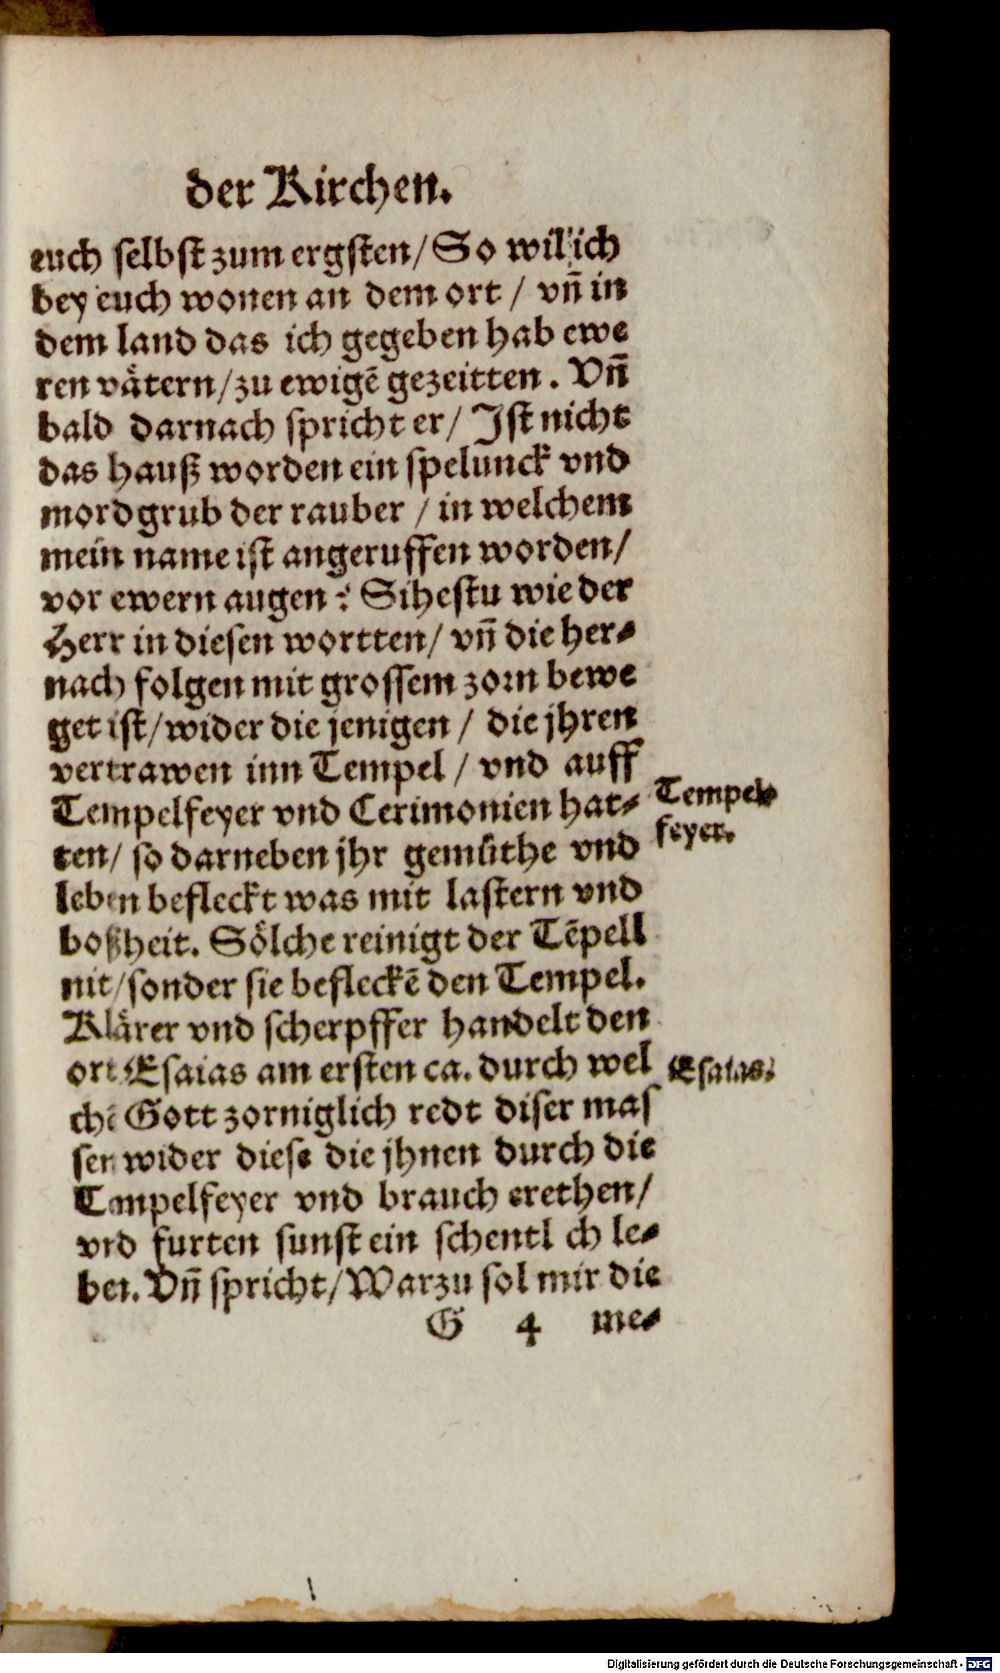 der Kirchen.
euch selbst zum ergsten/ So wil ich
bey euch wonen an dem ort / vñ in
dem land das ich gegeben hab ewe
ren vätern/zu ewigẽ gezeitten. Vñ
bald darnach spricht er/ Jst nicht
das hauß worden ein spelunck vnd
mordgrub der rauber / in welchem
mein name ist angeruffen worden/
vor ewern augen? Sihestu wie der
Herr in diesen wortten/ vñ die her-
nach folgen mit grossem zorn bewe
get ist/wider die jenigen / die jhren
vertrawen inn Tempel / vnd auff
Tempelfeyer vnd Cerimonien hat-
Tempel-
feyer.
ten/ so darneben jhr gemüthe vnd
leben befleckt was mit lastern vnd
boßheit. Sölche reinigt der Tẽpell
nit/sonder sie befleckẽ den Tempel.
Klärer vnd scherpffer handelt den
ort Esaias am ersten ca. durch wel
Esaias.
chẽ Gott zorniglich redt diser mas
ser wider diese die jhnen durch die
Tempelfeyer vnd brauch erethen/
vnd furten sunst ein schentlich le-
ben. Vñ spricht/Warzu sol mir die
G 4 me-
Digitalisierung gefördert durch die Deutsche Forschungsgemeinschaft - DFG